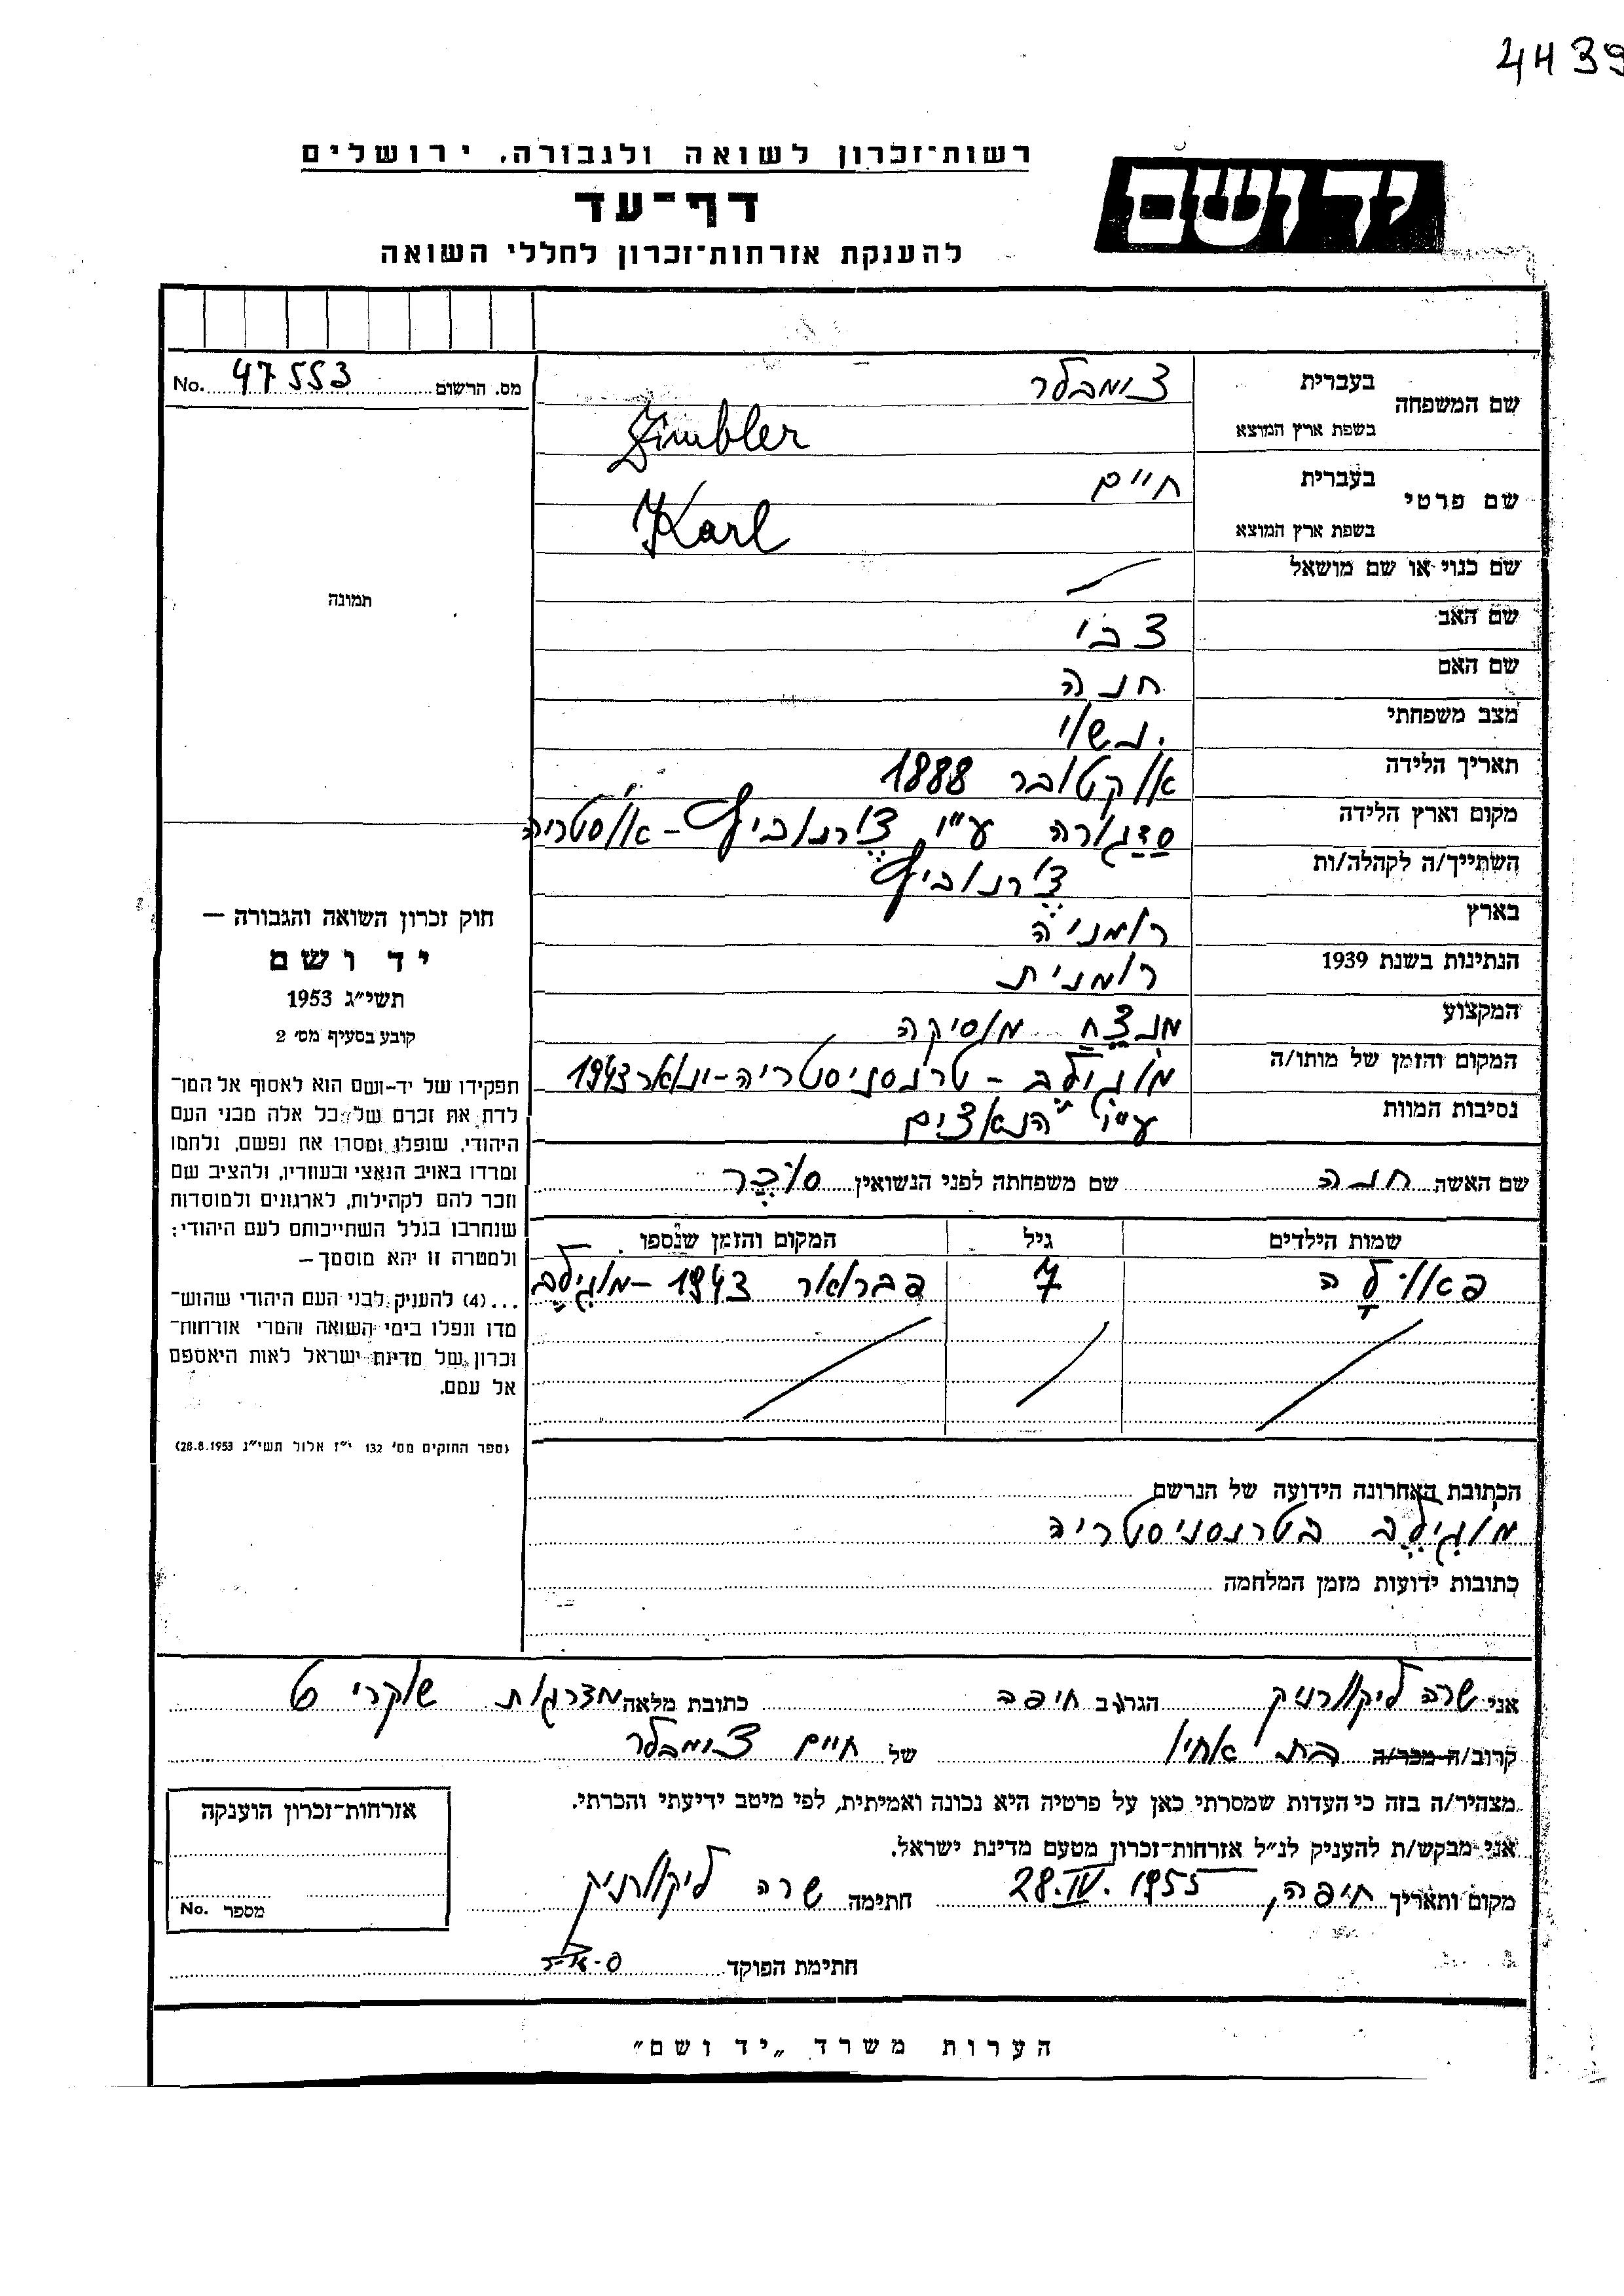 4439
רשות־זכרון לשואה ולגבורה, ירושלים
יד ושם
דף־עד
להענקת אזרחות־זכרון לחללי השואה
מס. הרשום 47553 No.
שם המשפחה
בעברית צימבלר
בשפת ארץ המוצא Zimbler
שם פרטי
בעברית חיים
בשפת ארץ המוצא Karl
שם כנוי או שם מושאל
שם האב צבי
שם האם חנה
מצב משפחתי נשוי
תאריך הלידה אוקטובר 1888
מקום וארץ הלידה סדגורה ע"י צ'רנוביץ - אוסטריה
השתייך/ה לקהלה/ות צ'רנוביץ
בארץ רומניה
הנתינות בשנת 1939 רומנית
המקצוע מנצח מוסיקה
המקום והזמן של מותו/ה מוגילב - טרנסניסטריה - ינואר 1943
נסיבות המוות ע"י הנאצים
תמונה
חוק זכרון השואה והגבורה —
יד ושם
תשי״ג 1953
קובע בסעיף מס׳ 2
תפקידו של יד־ושם הוא לאסוף אל המו־
לדת את זכרם של כל אלה מבני העם
היהודי, שנפלו ומסרו את נפשם, נלחמו
ומרדו באויב הנאצי ובעוזריו, ולהציב שם
וזכר להם לקהילות, לארגונים ולמוסדות
שנחרבו בגלל השתייכותם לעם היהודי;
ולמטרה זו יהא מוסמך —
...(4) להעניק לבני העם היהודי שהוש־
מדו ונפלו בימי השואה והמרי אזרחות־
זכרון של מדינת ישראל לאות היאספם
אל עמם.
(ספר החוקים מס׳ 132 י״ז אלול תשי״ג 28.8.1953)
שם האשה חנה שם משפחתה לפני הנשואין סוכר
שמות הילדים גיל המקום והזמן שנספו
פאולה 7 פברואר 1943 - מוגילב
הכתובת האחרונה הידועה של הנרשם
מוגילב בטרנסניסטריה
כתובות ידועות מזמן המלחמה
אני שרה ליקוורניק הגר/ב חיפה כתובת מלאה מדרגות שוקרי 6
קרוב/ה מכר/ה בת אחיו של חיים צימבלר
מצהיר/ה בזה כי העדות שמסרתי כאן על פרטיה היא נכונה ואמיתית, לפי מיטב ידיעתי והכרתי.
אני מבקש/ת להעניק לנ״ל אזרחות־זכרון מטעם מדינת ישראל.
מקום ותאריך חיפה, 28.IV.1955 חתימה שרה ליקוורניק
חתימת הפוקד
אזרחות־זכרון הוענקה
מספר No.
הערות משרד „יד ושם"